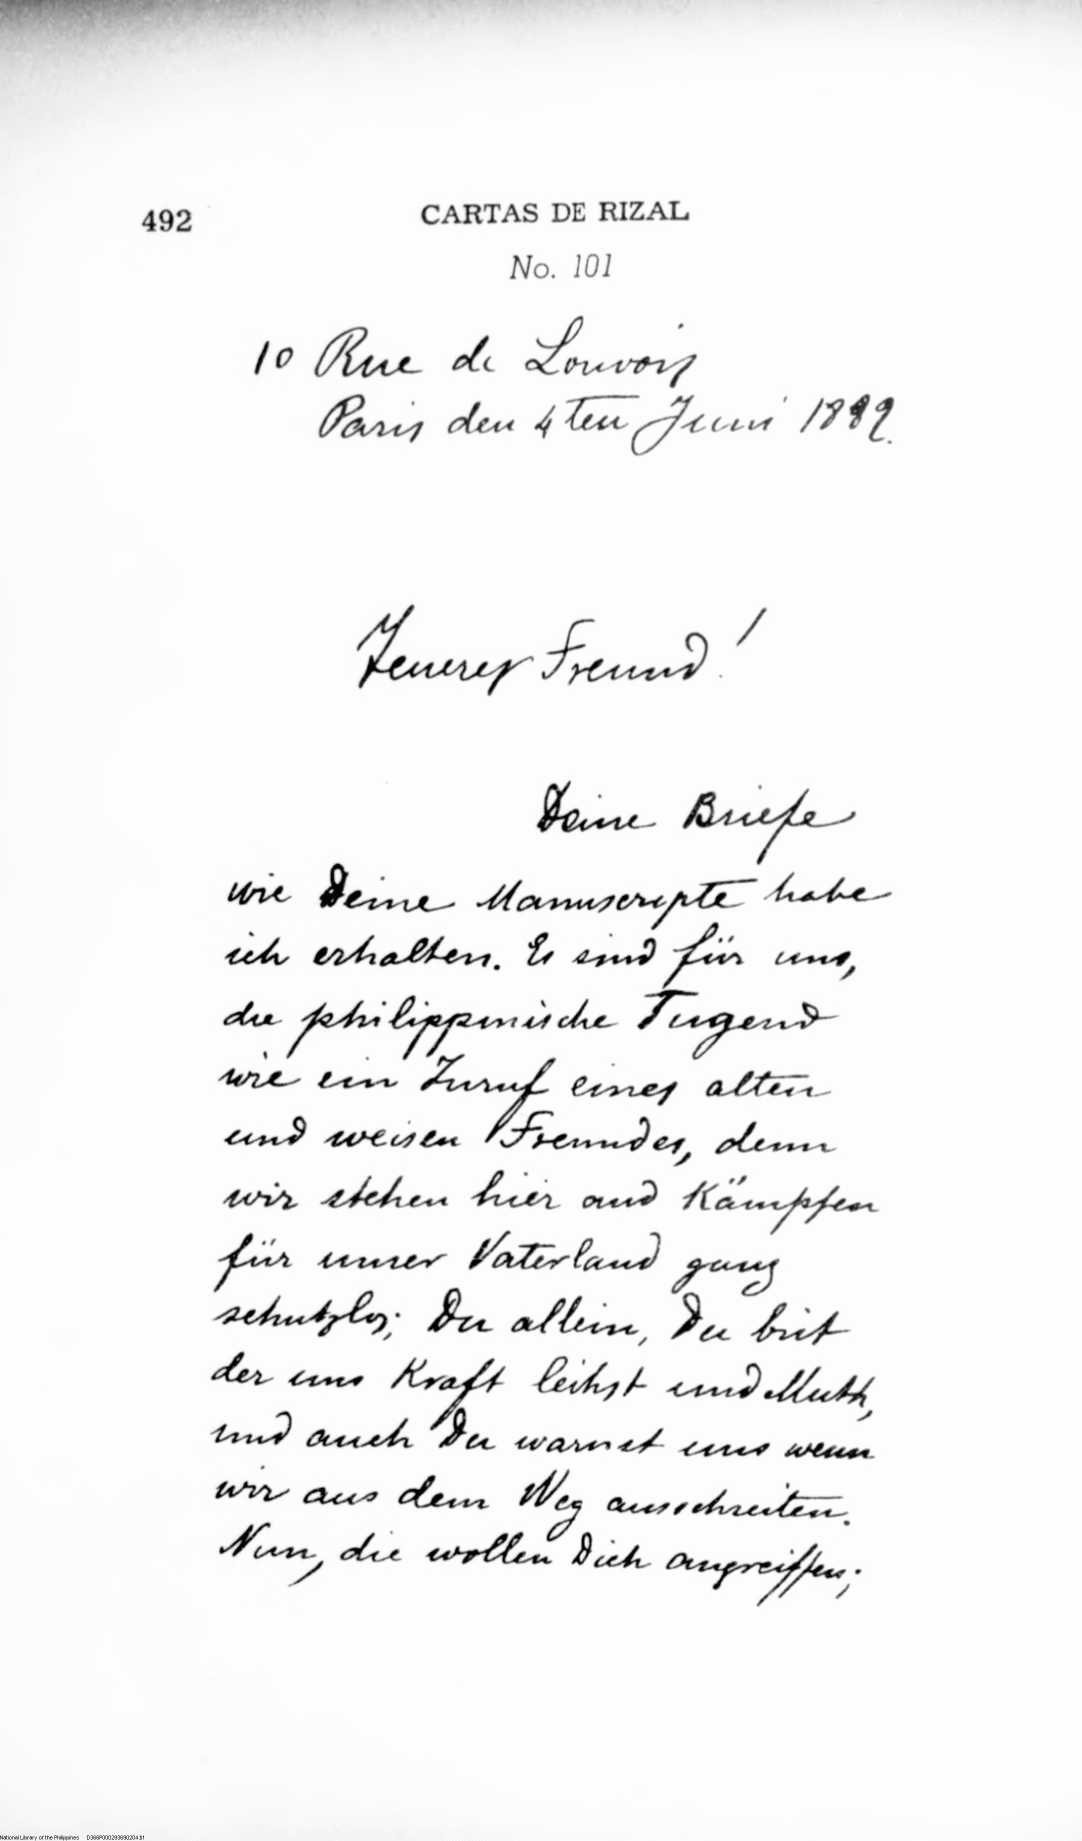 492
CARTAS DE RIZAL
No. 101
10 Rue de Louvois
Paris den 4ten Juni 1889.
Teueres Freund!
Deine Briefe
wie Deine Manuscripte habe
ich erhalten. Es sind für uns,
die philippinische Jugend
wie ein Zuruf eines alten
und weisen Freundes, denn
wir stehen hier und kämpfen
für unser Vaterland ganz
schutzlos; Du allein, Du bist
der uns Kraft leihst und Muth,
und auch Du warnst uns wenn
wir aus dem Weg ausschreiten.
Nun, die wollen Dich angreiffen;
National Library of the Philippines